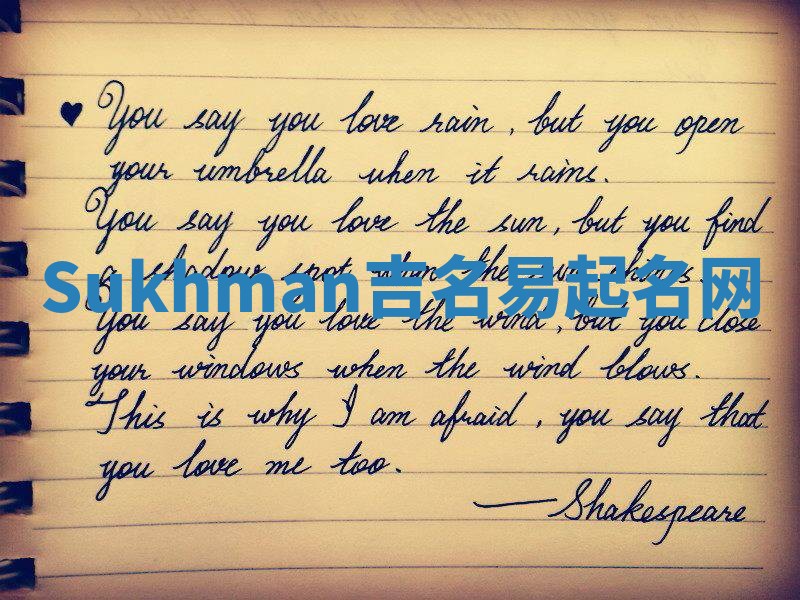 ♥ You say you love rain, but you open
your umbrella when it rains.
You say you love the sun, but you find
a shadow spot when the sun shines.
Sukhman吉名易起名网
You say you love the wind, but you close
your windows when the wind blows.
This is why I am afraid, you say that
you love me too.
—Shakespeare